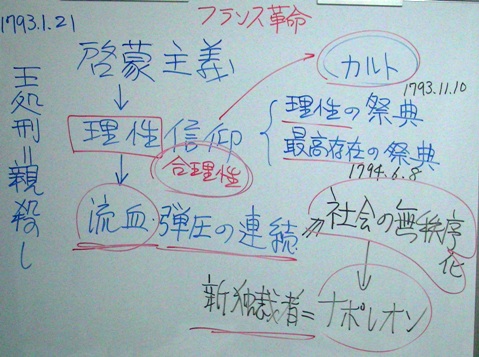 フランス革命
1793.1.21
王処刑＝親殺し
啓蒙主義
↓
理性信仰
合理性
↓
流血・弾圧の連続
カルト
1793.11.10
理性の祭典
最高存在の祭典
1794.6.8
社会の無秩序化
↓
新独裁者＝ナポレオン